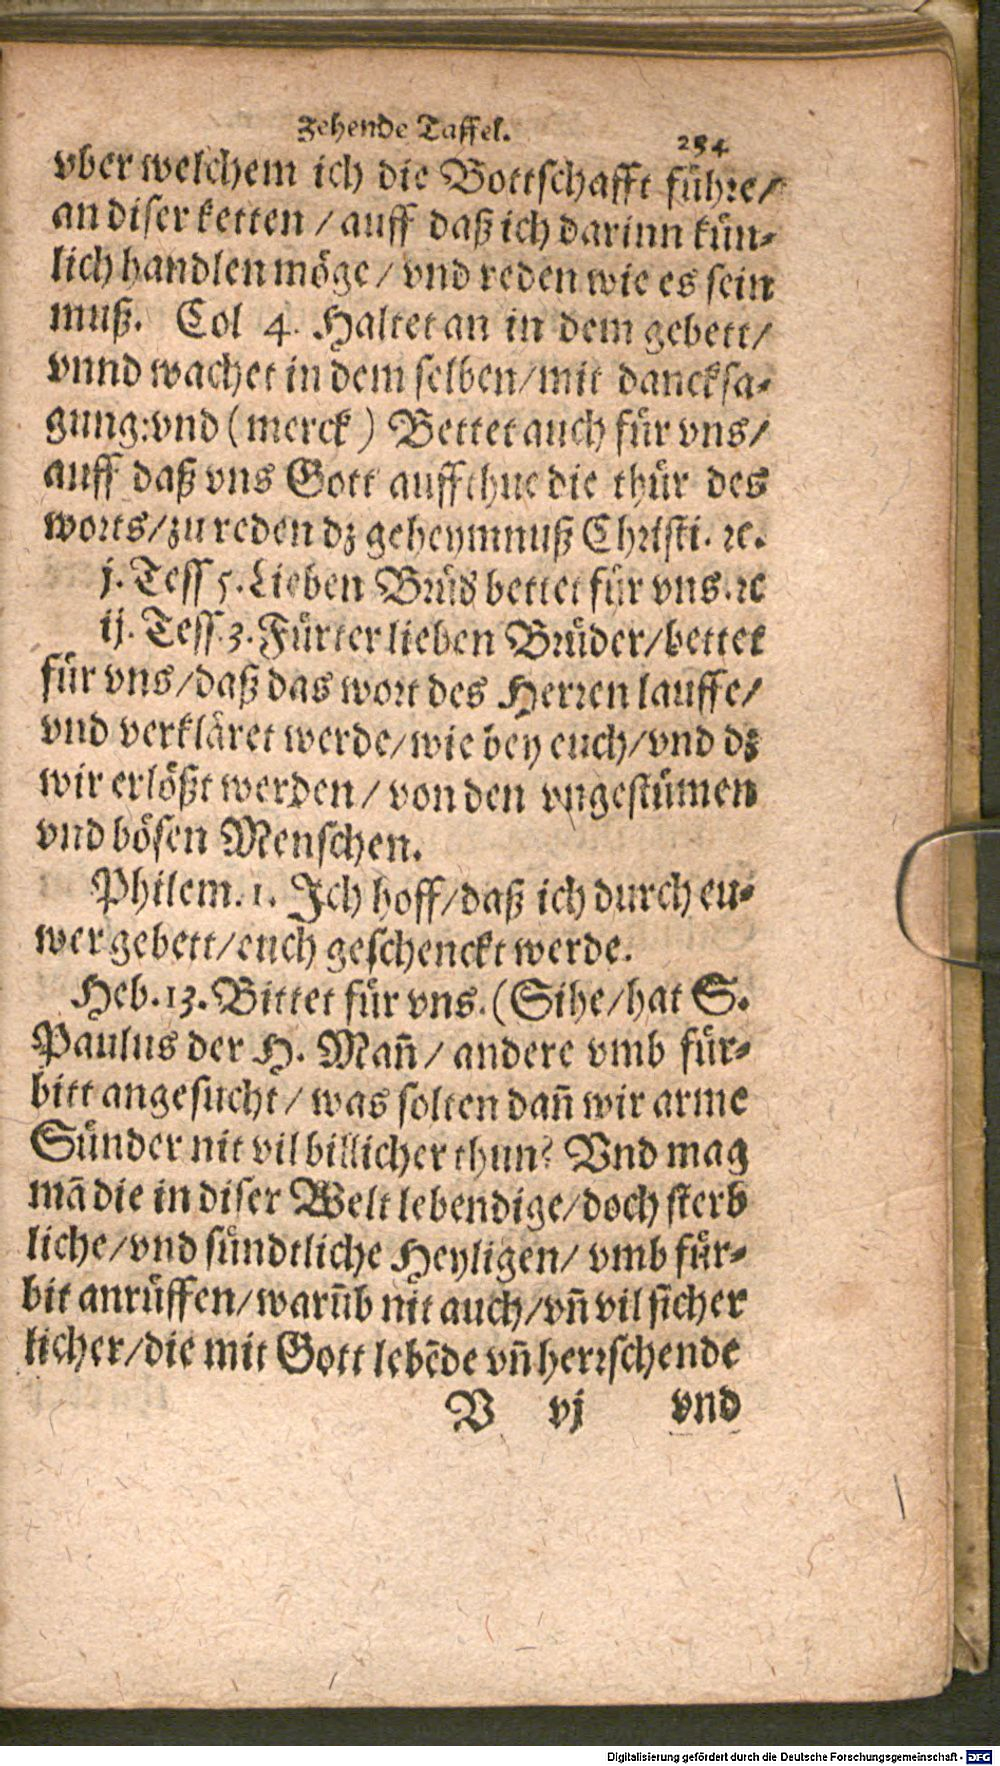 Zehende Taffel.
254
vber welchem ich die Bottschafft führe/
an diser ketten / auff daß ich darinn kün-
lich handlen möge / vnd reden wie es sein
muß. Col 4. Haltet an in dem gebett/
vnnd wachet in dem selben/mit dancksa-
gung:vnd (merck) Bettet auch für vns/
auff daß vns Gott auffthue die thür des
worts/zu reden dz geheymnuß Christi. ꝛc.
j. Tess 5. Lieben Brüd bettet für vns.ꝛc
ij. Tess.3. Fürter lieben Brůder/bettet
für vns/daß das wort des Herren lauffe/
vnd verkläret werde/wie bey euch/vnd dz
wir erlößt werden/ von den vngestümen
vnd bösen Menschen.
Philem. 1. Ich hoff/daß ich durch eu-
wer gebett/euch geschenckt werde.
Heb. 13. Bittet für vns. (Sihe/hat S.
Paulus der H. Mañ/ andere vmb für-
bitt angesucht/ was solten dañ wir arme
Sünder nit vil billicher thun? Vnd mag
mā die in diser Welt lebendige/doch sterb
liche/vnd sündtliche Heyligen/ vmb für-
bit anrůffen/warūb nit auch/vñ vil sicher
licher/die mit Gott lebēde vñ herrschende
V vj vnd
Digitalisierung gefördert durch die Deutsche Forschungsgemeinschaft - DFG